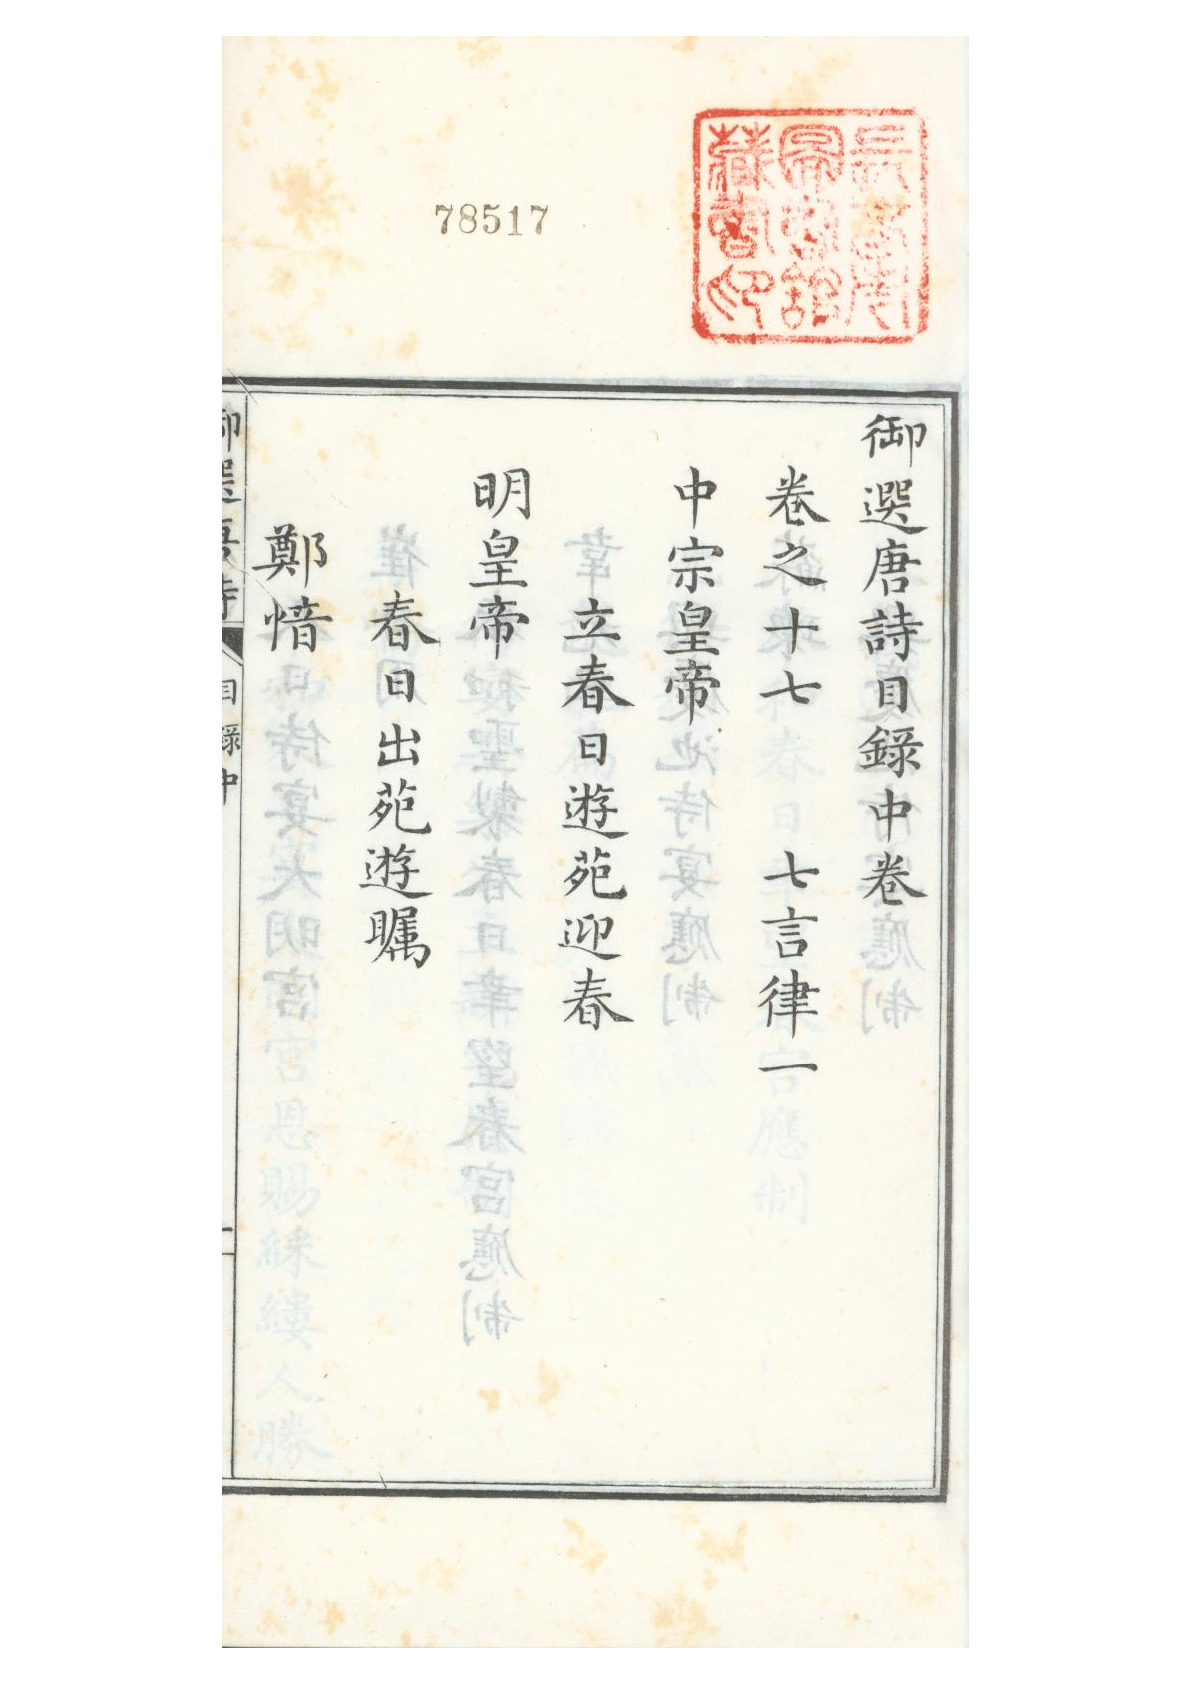 御選唐詩目錄中卷
卷之十七　七言律一
中宗皇帝
立春日遊苑迎春
明皇帝
春日出苑遊矚
鄭愔
御選唐詩
目錄中
78517
藏書印